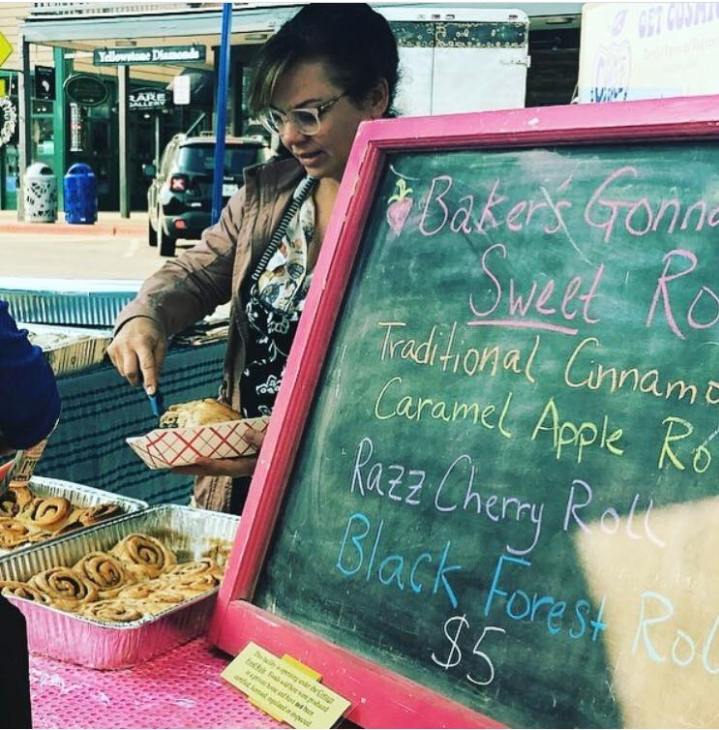 Yellowstone Diamonds
RARE
GALLERY
GET
Baker's Gonna
Sweet Ro
Traditional Cinnamo
Caramel Apple Ro
Razz Cherry Roll
Black Forest Rol
$5